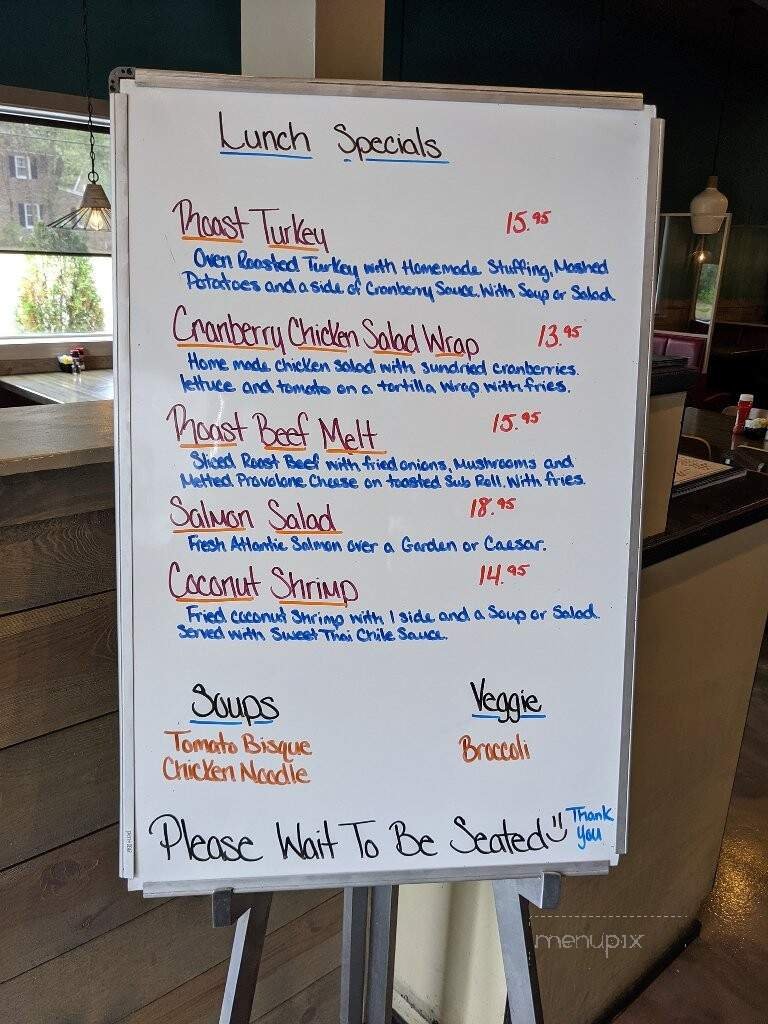 Lunch Specials
Roast Turkey 15.95
Oven Roasted Turkey with Homemade Stuffing, Mashed
Potatoes and a side of Cranberry Sauce. With Soup or Salad
Cranberry Chicken Salad Wrap 13.95
Home made chicken salad with sundried cranberries.
lettuce and tomato on a tortilla wrap with fries.
Roast Beef Melt 15.95
Sliced Roast Beef with fried onions, Mushrooms and
Melted Provolone Cheese on toasted Sub Roll. With fries.
Salmon Salad 18.95
Fresh Atlantic Salmon over a Garden or Caesar.
Coconut Shrimp 14.95
Fried coconut shrimp with 1 side and a Soup or Salad.
Served with Sweet Thai Chile Sauce.
Soups
Tomato Bisque
Chicken Noodle
Veggie
Broccoli
Please Wait To Be Seated Thank
You
menupix